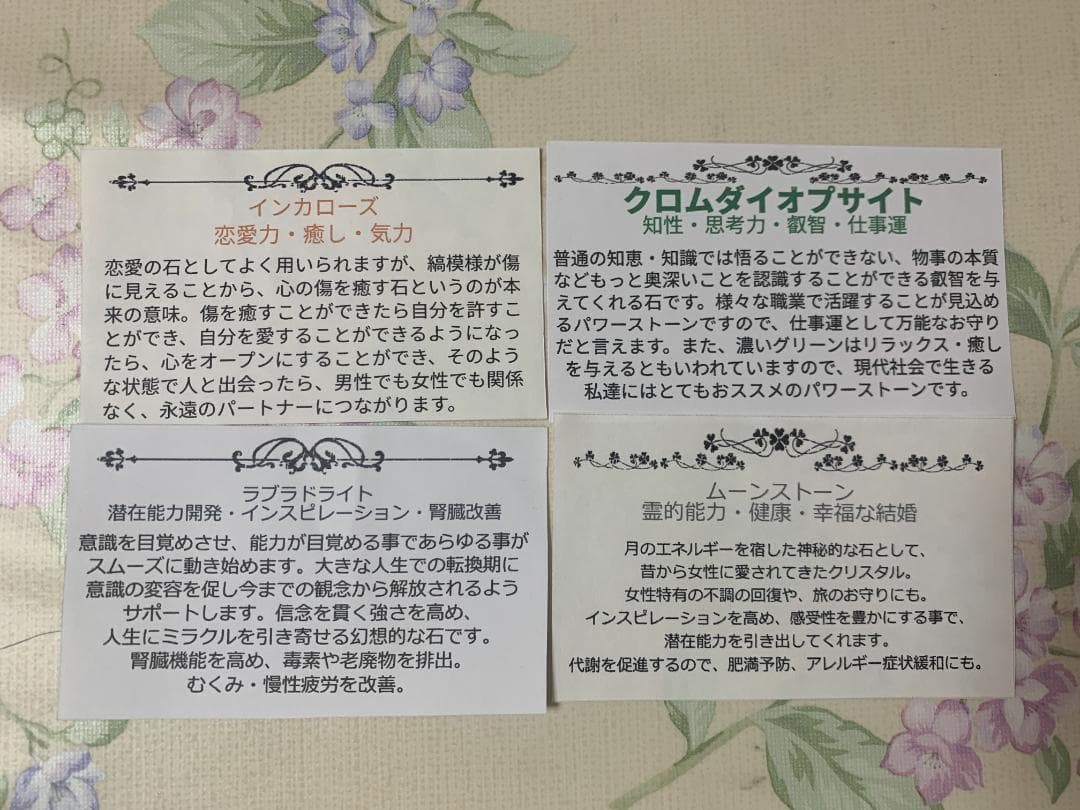 インカローズ
恋愛力・癒し・気力
恋愛の石としてよく用いられますが、縞模様が傷
に見えることから、心の傷を癒す石というのが本
来の意味。傷を癒すことができたら自分を許すこ
とができ、自分を愛することができるようになっ
たら、心をオープンにすることができ、そのよう
な状態で人と出会ったら、男性でも女性でも関係
なく、永遠のパートナーにつながります。
クロムダイオプサイト
知性・思考力・叡智・仕事運
普通の知恵・知識では悟ることができない、物事の本質
などもっと奥深いことを認識することができる叡智を与
えてくれる石です。様々な職業で活躍することが見込め
るパワーストーンですので、仕事運として万能なお守り
だと言えます。また、濃いグリーンはリラックス・癒し
を与えるともいわれていますので、現代社会で生きる
私達にはとてもおススメのパワーストーンです。
ラブラドライト
潜在能力開発・インスピレーション・腎臓改善
意識を目覚めさせ、能力が目覚める事であらゆる事が
スムーズに動き始めます。大きな人生での転換期に
意識の変容を促し今までの観念から解放されるよう
サポートします。信念を貫く強さを高め、
人生にミラクルを引き寄せる幻想的な石です。
腎臓機能を高め、毒素や老廃物を排出。
むくみ・慢性疲労を改善。
ムーンストーン
霊的能力・健康・幸福な結婚
月のエネルギーを宿した神秘的な石として、
昔から女性に愛されてきたクリスタル。
女性特有の不調の回復や、旅のお守りにも。
インスピレーションを高め、感受性を豊かにする事で、
潜在能力を引き出してくれます。
代謝を促進するので、肥満予防、アレルギー症状緩和にも。